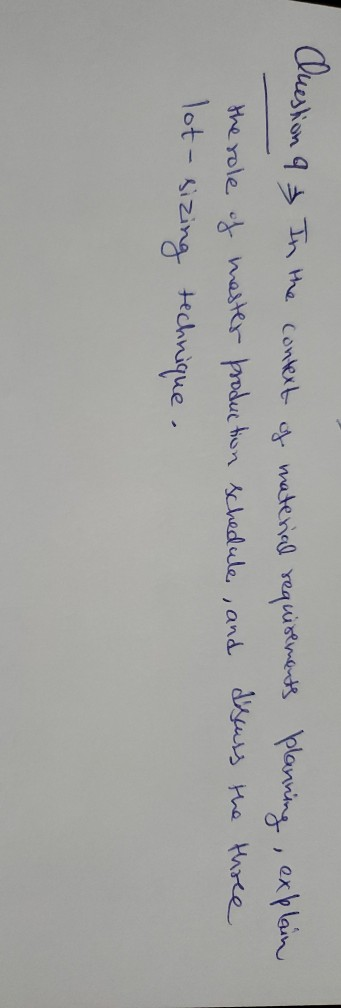 Question 9 → In the context of material requirements planning, explain
the role of master production schedule, and discuss the three
lot-sizing technique.